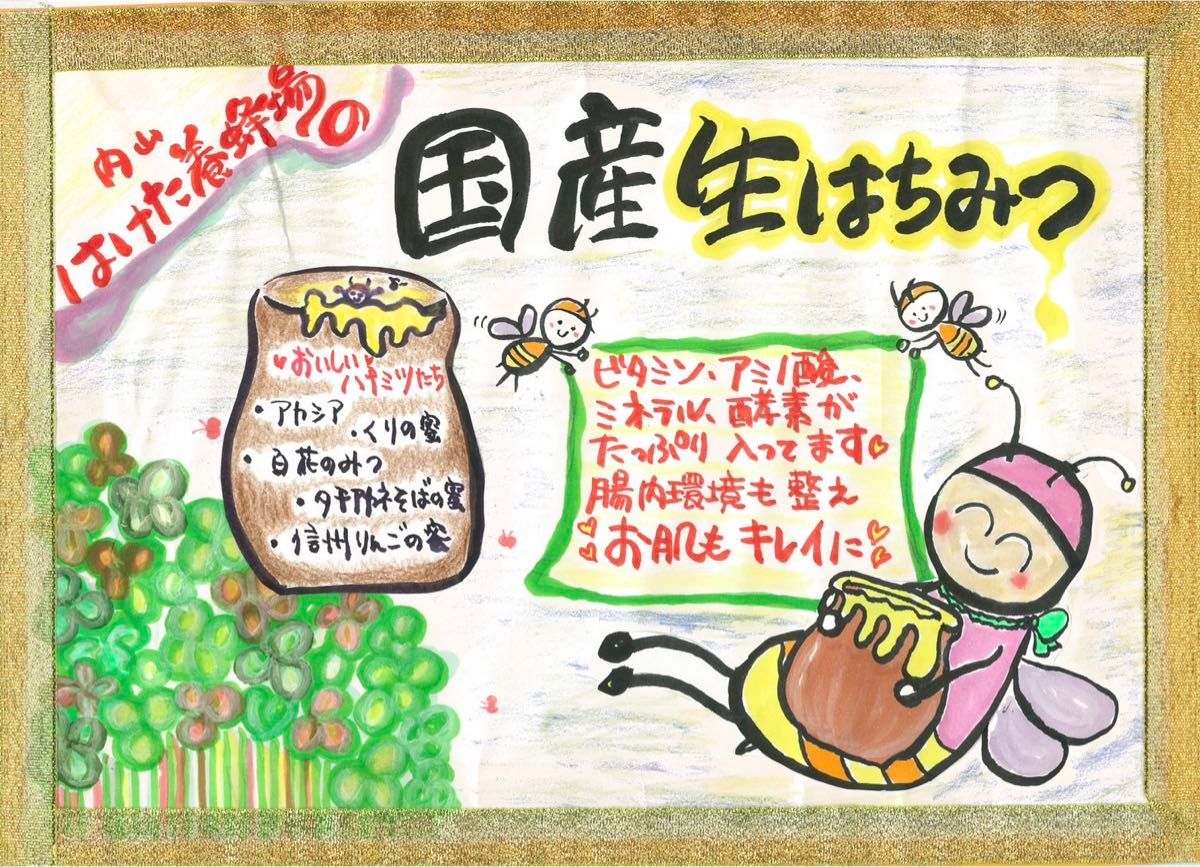 内山
はけた養蜂場の
国産生はちみつ
おいしい
ハチミツたち
・アカシア
・くりの蜜
・百花のみつ
・タカアカネそばの蜜
・信州りんごの蜜
ビタミン、アミノ酸、
ミネラル、酵素が
たっぷり入ってます
腸内環境も整え
お肌もキレイに